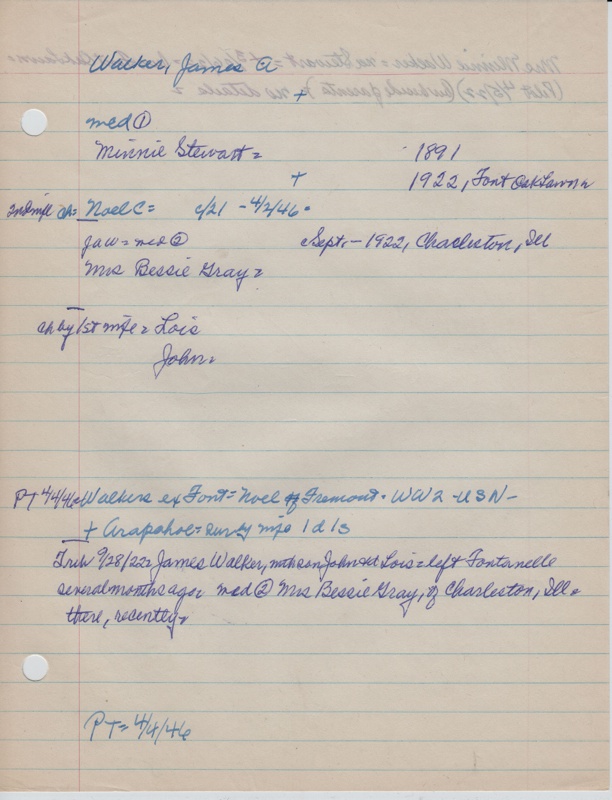 Walker, James A
+
med ①
Minnie Stewart = 1891
+ 1922, Font Oak Lawn =
2nd mfe ch = Noel C = c/21 - 4/2/46 =
JaW = med ② Sept, - 1922, Charleston, Ill
Mrs Bessie Gray =
ch by 1st mfe = Lois
John =
PT 4/4/46 = Walkers ex Font = Noel of Fremont - WW2 - USN -
+ Arapahoe = surv by mfe 1 d 1 s
Trib 9/28/22 = James Walker, with son John + d Lois = left Fontanelle
several months ago = med ② Mrs Bessie Gray, of Charleston, Ill =
there, recently =
PT = 4/4/46